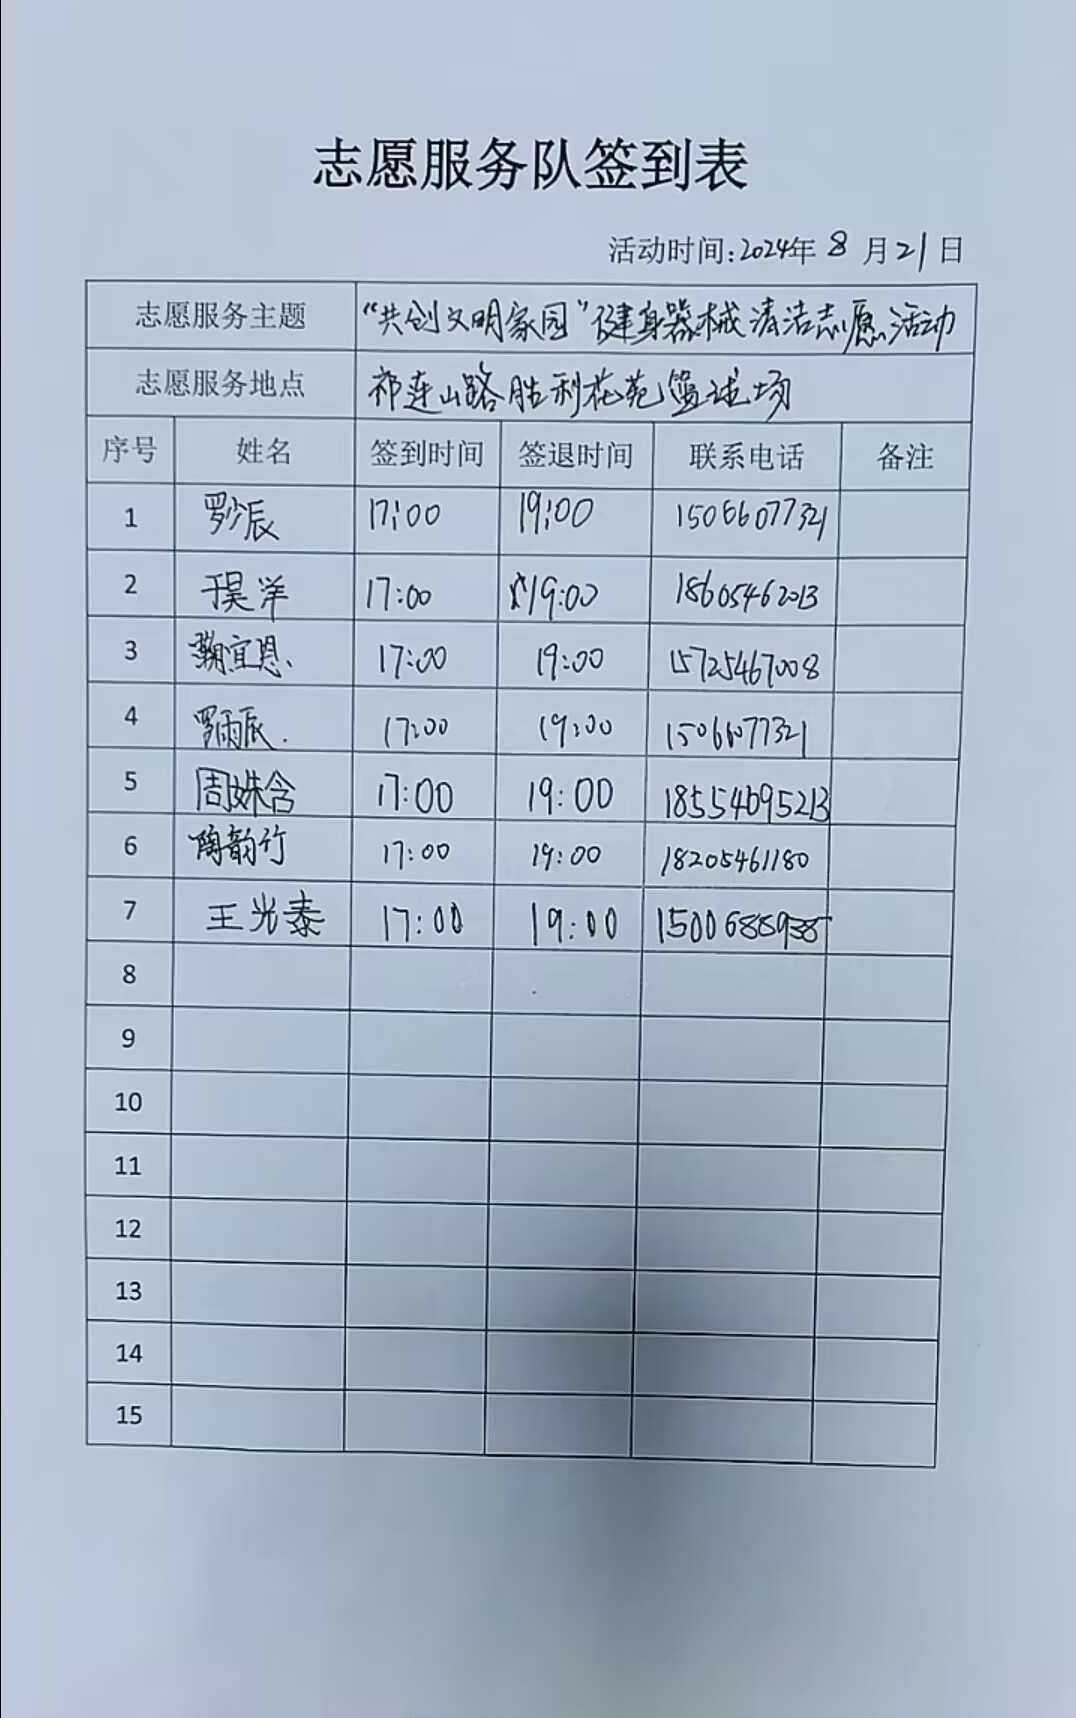 志愿服务队签到表
活动时间:2024年 8 月21日
志愿服务主题 “共创文明家园”健身器械清洁志愿活动
志愿服务地点 祁连山路胜利花苑篮球场
序号 姓名 签到时间 签退时间 联系电话 备注
1 罗少辰 17:00 19:00 15066077321
2 于昊洋 17:00 19:00 18605462013
3 宜恩 17:00 19:00 15725467008
4 罗雨辰 17:00 19:00 15066077321
5 周姝含 17:00 19:00 18554695213
6 陶韵竹 17:00 19:00 18205461180
7 王光泰 17:00 19:00
8
9
10
11
12
13
14
15